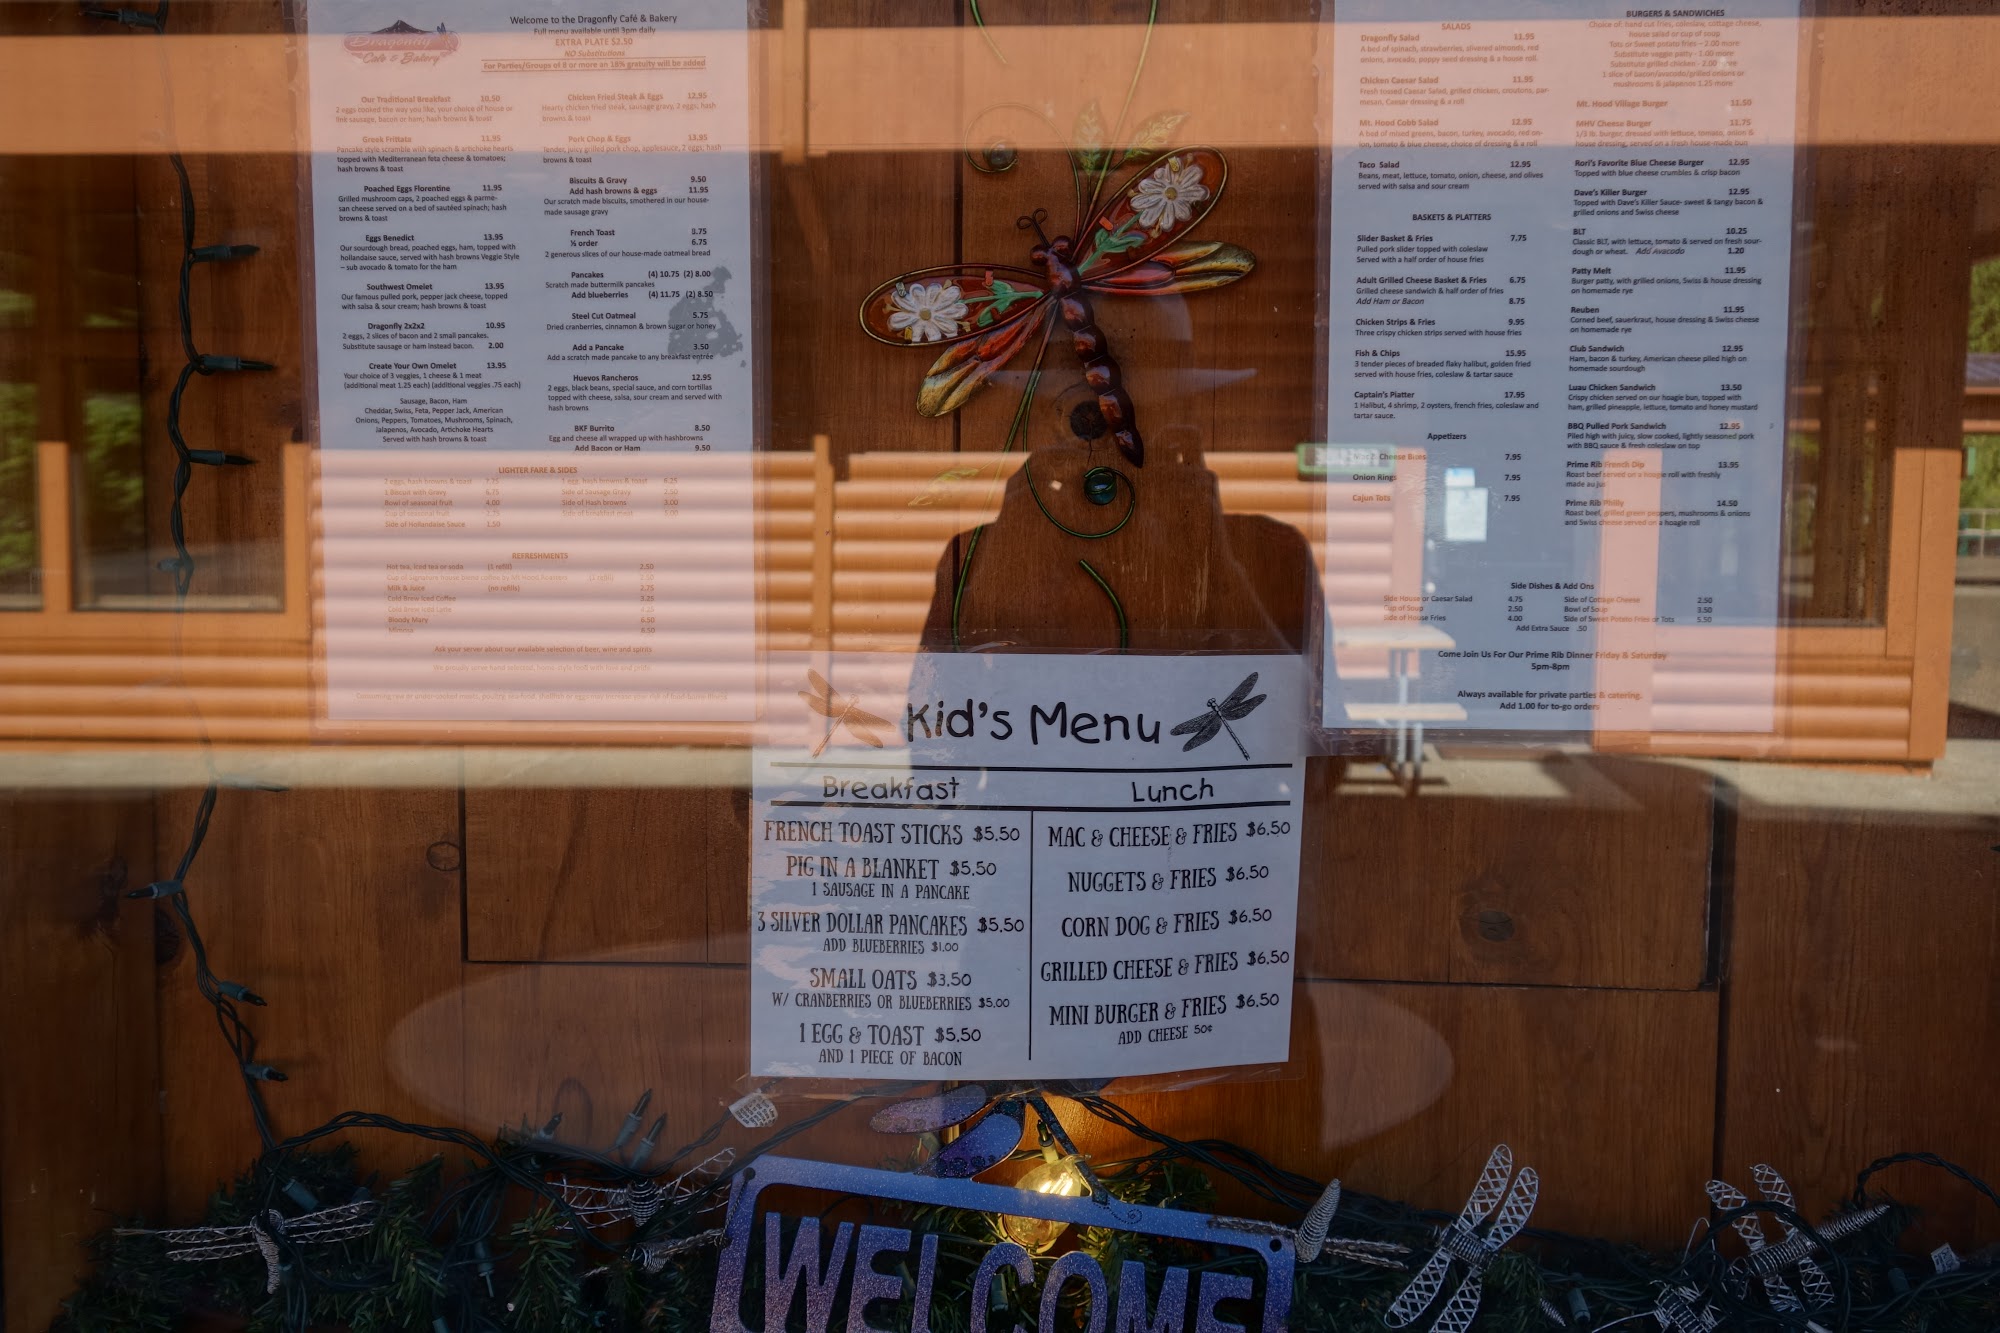 Dragonfly
Cafe & Bakery
Welcome to the Dragonfly Café & Bakery
Full menu available until 3pm daily
EXTRA PLATE $2.50
NO Substitutions
For Parties/Groups of 8 or more an 18% gratuity will be added
Our Traditional Breakfast 10.50
2 eggs cooked the way you like, your choice of house or
link sausage, bacon or ham; hash browns & toast
Greek Frittata 11.95
Pancake style scramble with spinach & artichoke hearts
topped with Mediterranean feta cheese & tomatoes;
hash browns & toast
Poached Eggs Florentine 11.95
Grilled mushroom caps, 2 poached eggs & parme-
san cheese served on a bed of sautéed spinach; hash
browns & toast
Eggs Benedict 13.95
Our sourdough bread, poached eggs, ham, topped with
hollandaise sauce, served with hash browns Veggie Style
– sub avocado & tomato for the ham
Southwest Omelet 13.95
Our famous pulled pork, pepper jack cheese, topped
with salsa & sour cream; hash browns & toast
Dragonfly 2x2x2 10.95
2 eggs, 2 slices of bacon and 2 small pancakes.
Substitute sausage or ham instead bacon. 2.00
Create Your Own Omelet 13.95
Your choice of 3 veggies, 1 cheese & 1 meat
(additional meat 1.25 each) (additional veggies .75 each)
Sausage, Bacon, Ham
Cheddar, Swiss, Feta, Pepper Jack, American
Onions, Peppers, Tomatoes, Mushrooms, Spinach,
Jalapenos, Avocado, Artichoke Hearts
Served with hash browns & toast
Chicken Fried Steak & Eggs 12.95
Hearty chicken fried steak, sausage gravy, 2 eggs; hash
browns & toast
Pork Chop & Eggs 13.95
Tender, juicy grilled pork chop, applesauce, 2 eggs; hash
browns & toast
Biscuits & Gravy 9.50
Add hash browns & eggs 11.95
Our scratch made biscuits, smothered in our house-
made sausage gravy
French Toast 8.75
½ order 6.75
2 generous slices of our house-made oatmeal bread
Pancakes (4) 10.75 (2) 8.00
Scratch made buttermilk pancakes
Add blueberries (4) 11.75 (2) 8.50
Steel Cut Oatmeal 5.75
Dried cranberries, cinnamon & brown sugar or honey
Add a Pancake 3.50
Add a scratch made pancake to any breakfast entrée
Huevos Rancheros 12.95
2 eggs, black beans, special sauce, and corn tortillas
topped with cheese, salsa, sour cream and served with
hash browns
BKF Burrito 8.50
Egg and cheese all wrapped up with hashbrowns
Add Bacon or Ham 9.50
LIGHTER FARE & SIDES
2 eggs, hash browns & toast 7.75
1 Biscuit with Gravy 6.75
Bowl of seasonal fruit 4.00
Cup of seasonal fruit 2.75
Side of Hollandaise Sauce 1.50
1 egg, hash browns & toast 6.25
Side of Sausage Gravy 2.50
Side of Hash browns 3.00
Side of breakfast meat 3.00
REFRESHMENTS
Hot tea, iced tea or soda (1 refill) 2.50
Cup of Signature house blend coffee by Mt Hood Roasters (1 refill) 2.50
Milk & Juice (no refills) 2.75
Cold Brew Iced Coffee 3.25
Cold Brew Iced Latte 4.25
Bloody Mary 6.50
Mimosa 6.50
Ask your server about our available selection of beer, wine and spirits
We proudly serve hand selected, home-style food with love and pride
Consuming raw or under-cooked meats, poultry, sea-food, shellfish or eggs may increase your risk of food-borne illness
SALADS
Dragonfly Salad 11.95
A bed of spinach, strawberries, slivered almonds, red
onions, avocado, poppy seed dressing & a house roll.
Chicken Caesar Salad 11.95
Fresh tossed Caesar Salad, grilled chicken, croutons, par-
mesan, Caesar dressing & a roll
Mt. Hood Cobb Salad 12.95
A bed of mixed greens, bacon, turkey, avocado, red on-
ion, tomato & blue cheese, choice of dressing & a roll
Taco Salad 12.95
Beans, meat, lettuce, tomato, onion, cheese, and olives
served with salsa and sour cream
BASKETS & PLATTERS
Slider Basket & Fries 7.75
Pulled pork slider topped with coleslaw
Served with a half order of house fries
Adult Grilled Cheese Basket & Fries 6.75
Grilled cheese sandwich & half order of fries
Add Ham or Bacon 8.75
Chicken Strips & Fries 9.95
Three crispy chicken strips served with house fries
Fish & Chips 15.95
3 tender pieces of breaded flaky halibut, golden fried
served with house fries, coleslaw & tartar sauce
Captain's Platter 17.95
1 Halibut, 4 shrimp, 2 oysters, french fries, coleslaw and
tartar sauce.
Appetizers
Mac & Cheese Bites 7.95
Onion Rings 7.95
Cajun Tots 7.95
BURGERS & SANDWICHES
Choice of: hand cut fries, coleslaw, cottage cheese,
house salad or cup of soup
Tots or Sweet potato fries – 2.00 more
Substitute veggie patty - 1.00 more
Substitute grilled chicken - 2.00 more
1 slice of bacon/avocado/grilled onions or
mushrooms & jalapenos 1.25 more
Mt. Hood Village Burger 11.50
MHV Cheese Burger 11.75
1/3 lb. burger, dressed with lettuce, tomato, onion &
house dressing, served on a fresh house-made bun
Rori's Favorite Blue Cheese Burger 12.95
Topped with blue cheese crumbles & crisp bacon
Dave's Killer Burger 12.95
Topped with Dave's Killer Sauce- sweet & tangy bacon &
grilled onions and Swiss cheese
BLT 10.25
Classic BLT, with lettuce, tomato & served on fresh sour-
dough or wheat. Add Avacado 1.20
Patty Melt 11.95
Burger patty, with grilled onions, Swiss & house dressing
on homemade rye
Reuben 11.95
Corned beef, sauerkraut, house dressing & Swiss cheese
on homemade rye
Club Sandwich 12.95
Ham, bacon & turkey, American cheese piled high on
homemade sourdough
Luau Chicken Sandwich 13.50
Crispy chicken served on our hoagie bun, topped with
ham, grilled pineapple, lettuce, tomato and honey mustard
BBQ Pulled Pork Sandwich 12.95
Piled high with juicy, slow cooked, lightly seasoned pork
with BBQ sauce & fresh coleslaw on top
Prime Rib French Dip 13.95
Roast beef served on a hoagie roll with freshly
made au jus
Prime Rib Philly 14.50
Roast beef, grilled green peppers, mushrooms & onions
and Swiss cheese served on a hoagie roll
Side Dishes & Add Ons
Side House or Caesar Salad 4.75
Cup of Soup 2.50
Side of House Fries 4.00
Side of Cottage Cheese 2.50
Bowl of Soup 3.50
Side of Sweet Potato Fries or Tots 5.50
Add Extra Sauce .50
Come Join Us For Our Prime Rib Dinner Friday & Saturday
5pm-8pm
Always available for private parties & catering.
Add 1.00 for to-go orders
Kid's Menu
Breakfast
FRENCH TOAST STICKS $5.50
PIG IN A BLANKET $5.50
1 SAUSAGE IN A PANCAKE
3 SILVER DOLLAR PANCAKES $5.50
ADD BLUEBERRIES $1.00
SMALL OATS $3.50
W/ CRANBERRIES OR BLUEBERRIES $5.00
1 EGG & TOAST $5.50
AND 1 PIECE OF BACON
Lunch
MAC & CHEESE & FRIES $6.50
NUGGETS & FRIES $6.50
CORN DOG & FRIES $6.50
GRILLED CHEESE & FRIES $6.50
MINI BURGER & FRIES $6.50
ADD CHEESE 50¢
WELCOME